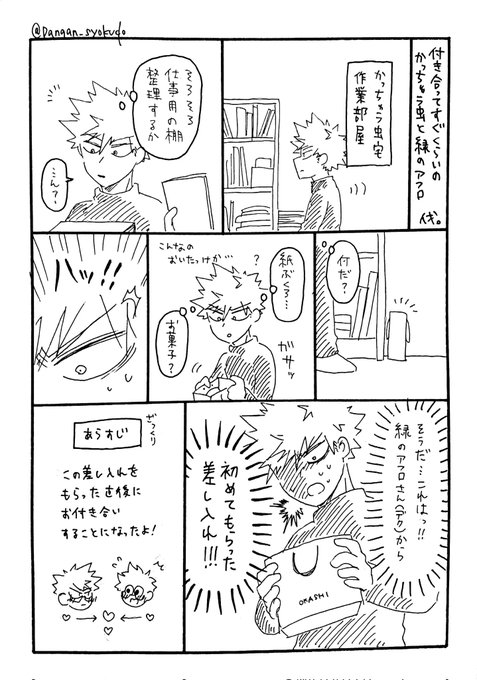 @Dangan_syokudo
付き合ってすぐくらいの
かっちゃう虫と緑のアフロ
かっちゃう虫宅
作業部屋
そろそろ
仕事用の棚
整理するか
…ん？
何だ？
紙ぶくろ…
ガサッ
こんなの
おいたっけか…
？
お菓子？
ハッ!!
そうだ…これはっ!!
緑のアフロさん(デク)から
初めてもらった
差し入れ!!!
OKASHI
ざっくり
あらすじ
この差し入れを
もらった直後に
お付き合い
することになったよ！